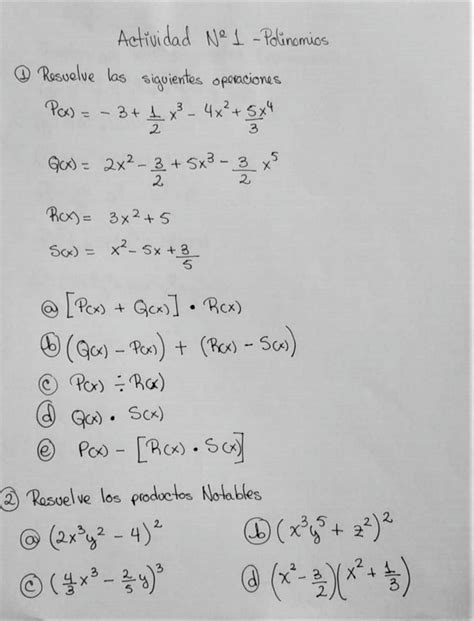 Actividad Nº 1 - Polinomios
① Resuelve las siguientes operaciones
P(x) = - 3 + 1/2 x³ - 4x² + 5x⁴/3
Q(x) = 2x² - 3/2 + 5x³ - 3/2 x⁵
R(x) = 3x² + 5
S(x) = x² - 5x + 3/5
ⓐ [P(x) + Q(x)] • R(x)
ⓑ (Q(x) - P(x)) + (R(x) - S(x))
ⓒ P(x) ÷ R(x)
ⓓ Q(x) • S(x)
ⓔ P(x) - [R(x) • S(x)]
② Resuelve los productos Notables
ⓐ (2x³y² - 4)² ⓑ (x³y⁵ + z²)²
ⓒ (4/3 x³ - 2/5 y)³ ⓓ (x² - 3/2)(x² + 1/3)